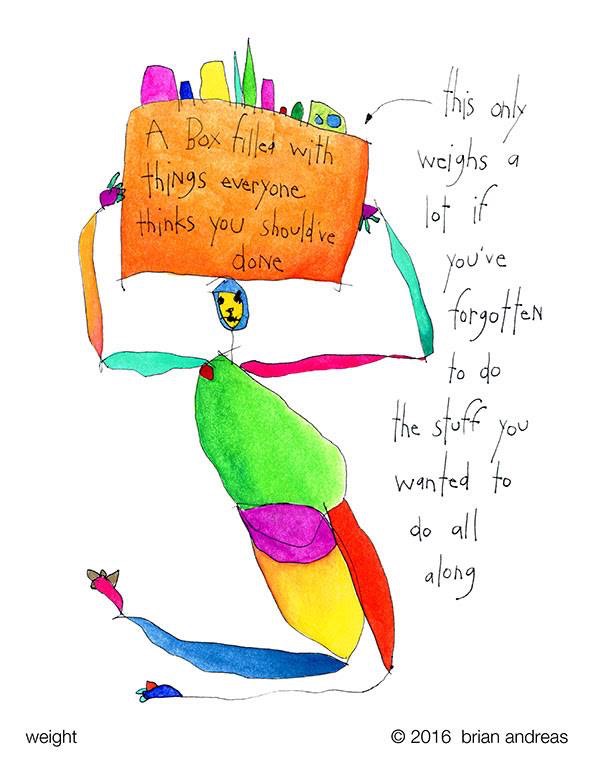 A Box filled with
things everyone
thinks you should've
done
this only
weighs a
lot if
you've
forgotten
to do
the stuff you
wanted to
do all
along
weight
© 2016 brian andreas